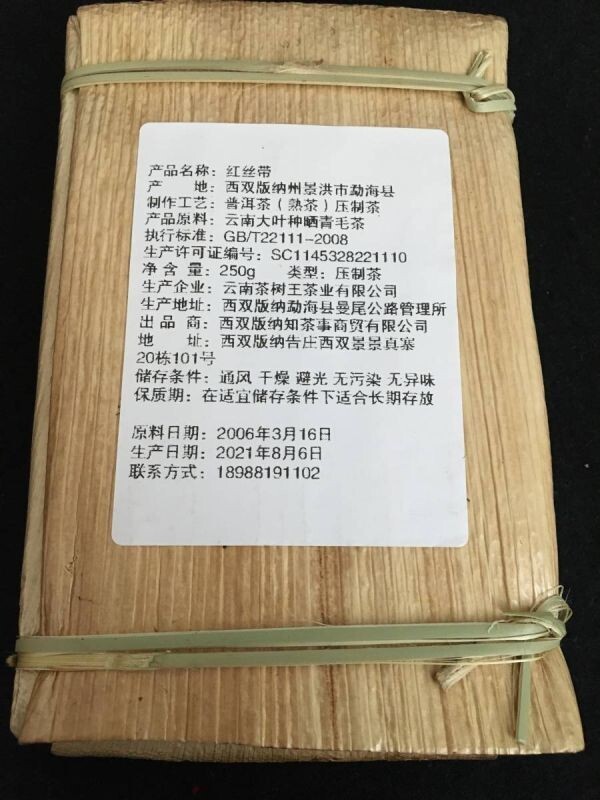 产品名称：红丝带
产 地：西双版纳州景洪市勐海县
制作工艺：普洱茶（熟茶）压制茶
产品原料：云南大叶种晒青毛茶
执行标准：GB/T22111-2008
生产许可证编号：SC1145328221110
净 含 量：250g 类型：压制茶
生产企业：云南茶树王茶业有限公司
生产地址：西双版纳勐海县曼尾公路管理所
出 品 商：西双版纳知茶事商贸有限公司
地 址：西双版纳告庄西双景景真寨
20栋101号
储存条件：通风 干燥 避光 无污染 无异味
保质期：在适宜储存条件下适合长期存放
原料日期：2006年3月16日
生产日期：2021年8月6日
联系方式：18988191102